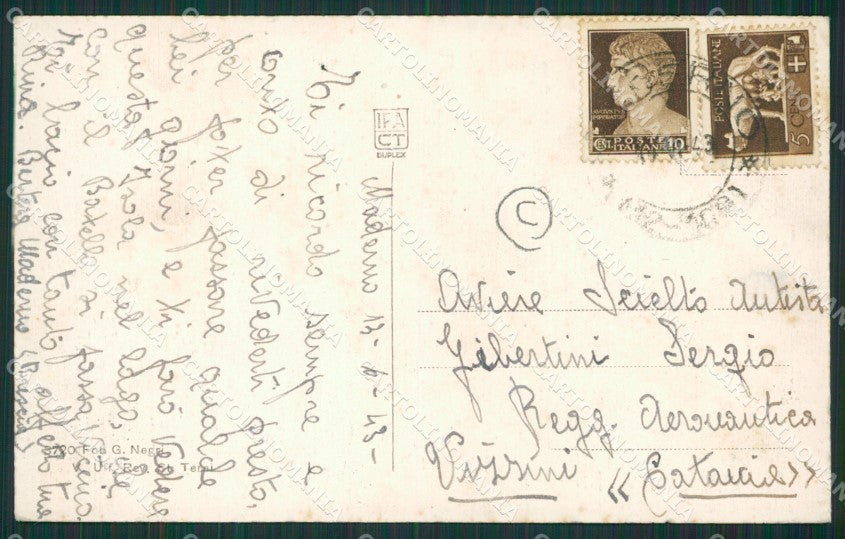 Maderno 13-6-43-
Ti ricordo sempre e
anxo di rivederti presto,
per poxer passare qualche
bei giorni, e ti farò vedere
questa Isola nel lago, che
con il Batello si passa vicino.
Tua
Rina. Bertera Maderno (Brescia)
IFA
CT
DUPLEX
3720 Fot. G. Negri
V. Uff. Rev. St. Terni
C
POSTE
ITALIANE
10
CENT.
AVGVSTVS
IMPERATOR
POSTE ITALIANE
5 CENT
Aviere Scielto Autista
Gibertini Sergio
Regg. Aeronautica
Vizzini «Catania»
CARTOLINOMANIA